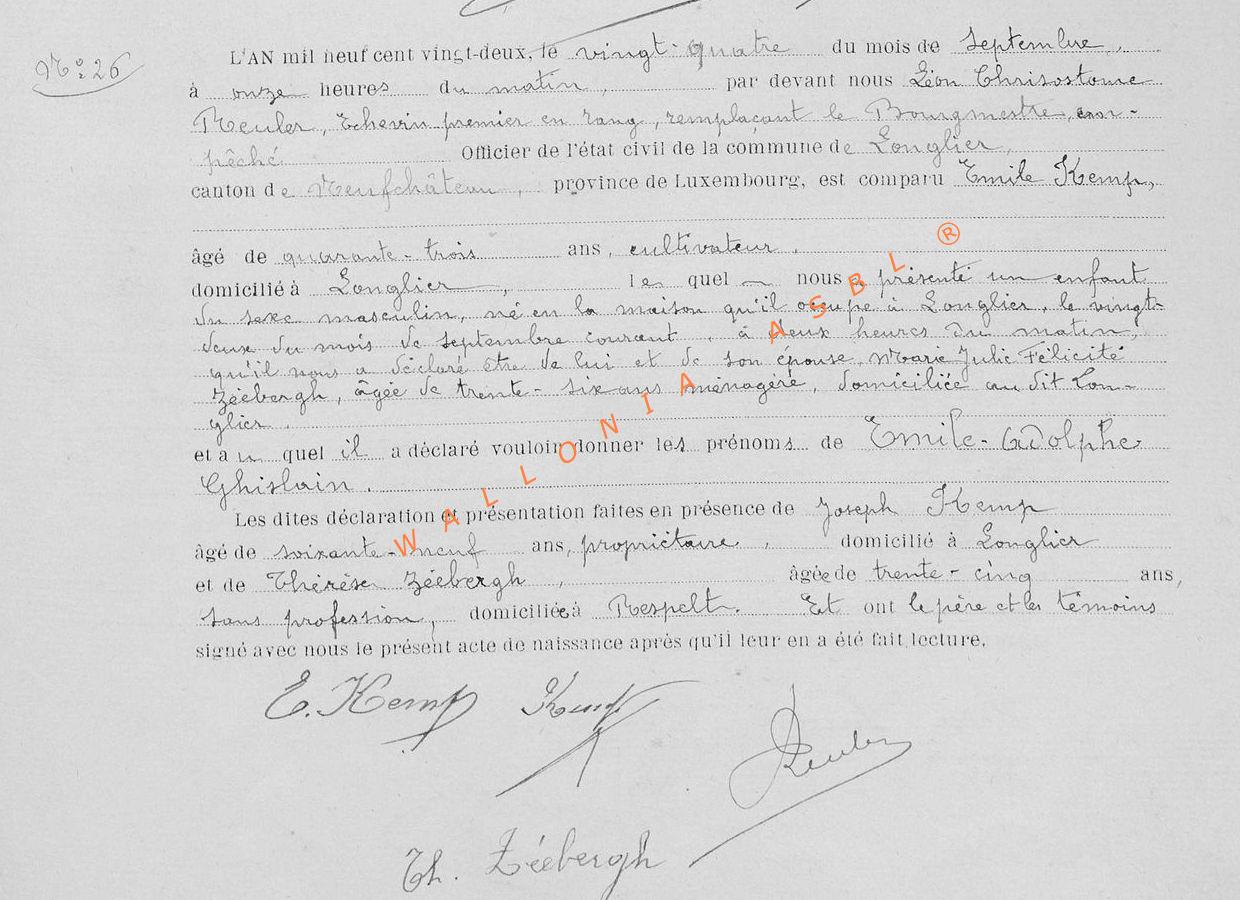 N° 26
L'AN mil neuf cent vingt-deux, le vingt-quatre du mois de Septembre,
à onze heures du matin, par devant nous Léon Chrisostome
Reuler, Echevin premier en rang, remplaçant le Bourgmestre, em-
pêché Officier de l'état civil de la commune de Longlier,
canton de Neufchâteau, province de Luxembourg, est comparu Emile Kemp,
âgé de quarante-trois ans, cultivateur,
domicilié à Longlier, le quel nous a présenté un enfant
du sexe masculin, né en la maison qu'il occupe à Longlier, le vingt-
deux du mois de septembre courant, à deux heures du matin,
qu'il nous a déclaré être de lui et de son épouse, Marie Julie Félicité
Zéebergh, âgée de trente-six ans ménagère, domiciliée au dit Lon-
glier.
et au quel il a déclaré vouloir donner les prénoms de Emile-Adolphe
Ghislain.
Les dites déclaration et présentation faites en présence de Joseph Kemp
âgé de soixante-neuf ans, propriétaire, domicilié à Longlier
et de Thérèse Zéebergh, âgée de trente-cinq ans,
sans profession, domiciliée à Respelt. Et ont le père et les témoins
signé avec nous le présent acte de naissance après qu'il leur en a été fait lecture.
E. Kemp Kemp
Reuler
Th. Zéebergh
WALLONIA ASBL ®